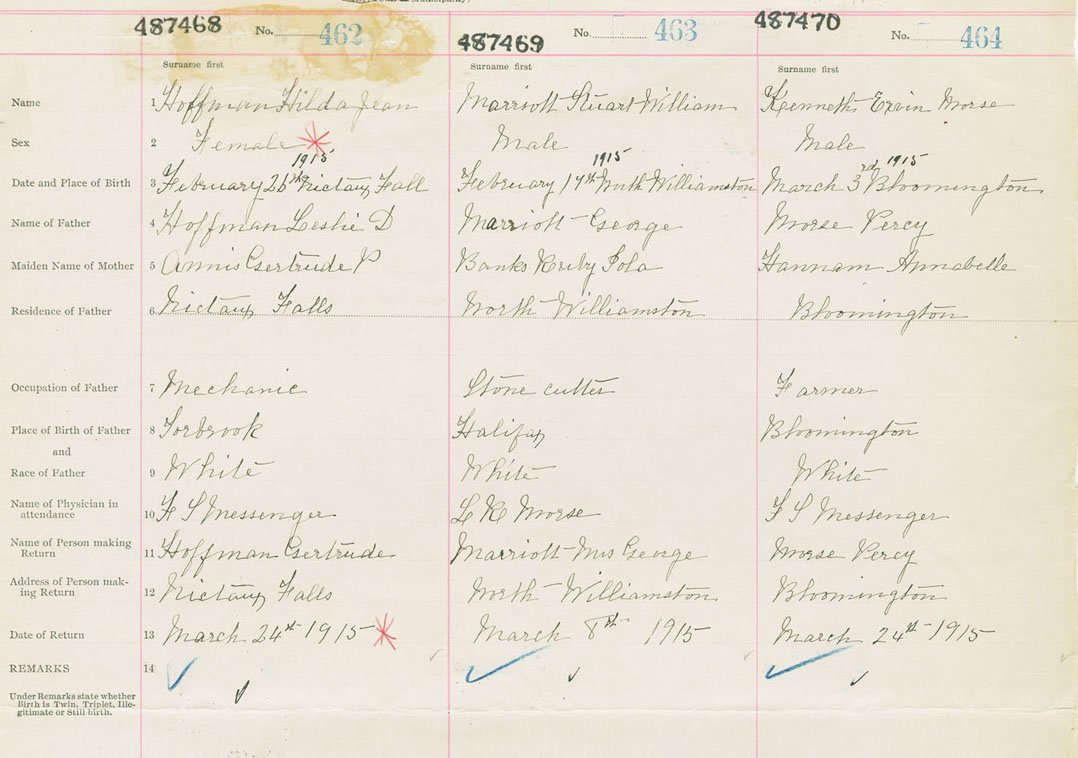 487468 No. 462 487469 No. 463 487470 No. 464
Surname first Surname first Surname first
Name 1 Hoffman Hilda Jean Marriott Stuart William Kenneth Ervin Morse
Sex 2 Female Male Male
1915 1915 rd 1915
Date and Place of Birth 3 February 26th Nictaux Fall February 17th North Williamston March 3 Bloomington
Name of Father 4 Hoffman Leslie D Marriott George Morse Percy
Maiden Name of Mother 5 Annis Gertrude P Banks Ruby Iola Hannam Annabelle
Residence of Father 6 Nictaux Falls North Williamston Bloomington
Occupation of Father 7 Mechanic Stone cutter Farmer
Place of Birth of Father 8 Torbrook Halifax Bloomington
and
Race of Father 9 White White White
Name of Physician in
attendance 10 F S Messenger L R Morse F S Messenger
Name of Person making
Return 11 Hoffman Gertrude Marriott Mrs George Morse Percy
Address of Person mak-
ing Return 12 Nictaux Falls North Williamston Bloomington
Date of Return 13 March 24th 1915 March 8th 1915 March 24th 1915
REMARKS 14
Under Remarks state whether
Birth is Twin, Triplet, Ille-
gitimate or Still-birth.